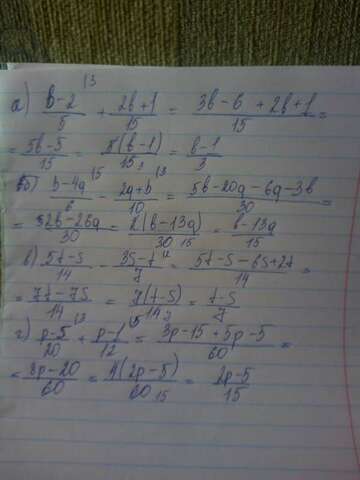 а) (b-2)/5 ^(3 + (2b+1)/15 = (3b-6+2b+1)/15 =
= (5b-5)/15 = 5(b-1)/15 3 = (b-1)/3
б) (b-4a)/6 ^(5 - (2a+b)/10 ^(3 = (5b-20a-6a-3b)/30 =
= (2b-26a)/30 = 2(b-13a)/30 15 = (b-13a)/15
в) (5t-s)/14 - (3s-t)/7 ^(2 = (5t-s-6s+2t)/14 =
= (7t-7s)/14 = 7(t-s)/14 2 = (t-s)/2
г) (p-5)/20 ^(3 + (p-1)/12 ^(5 = (3p-15+5p-5)/60 =
= (8p-20)/60 = 4(2p-5)/60 15 = (2p-5)/15